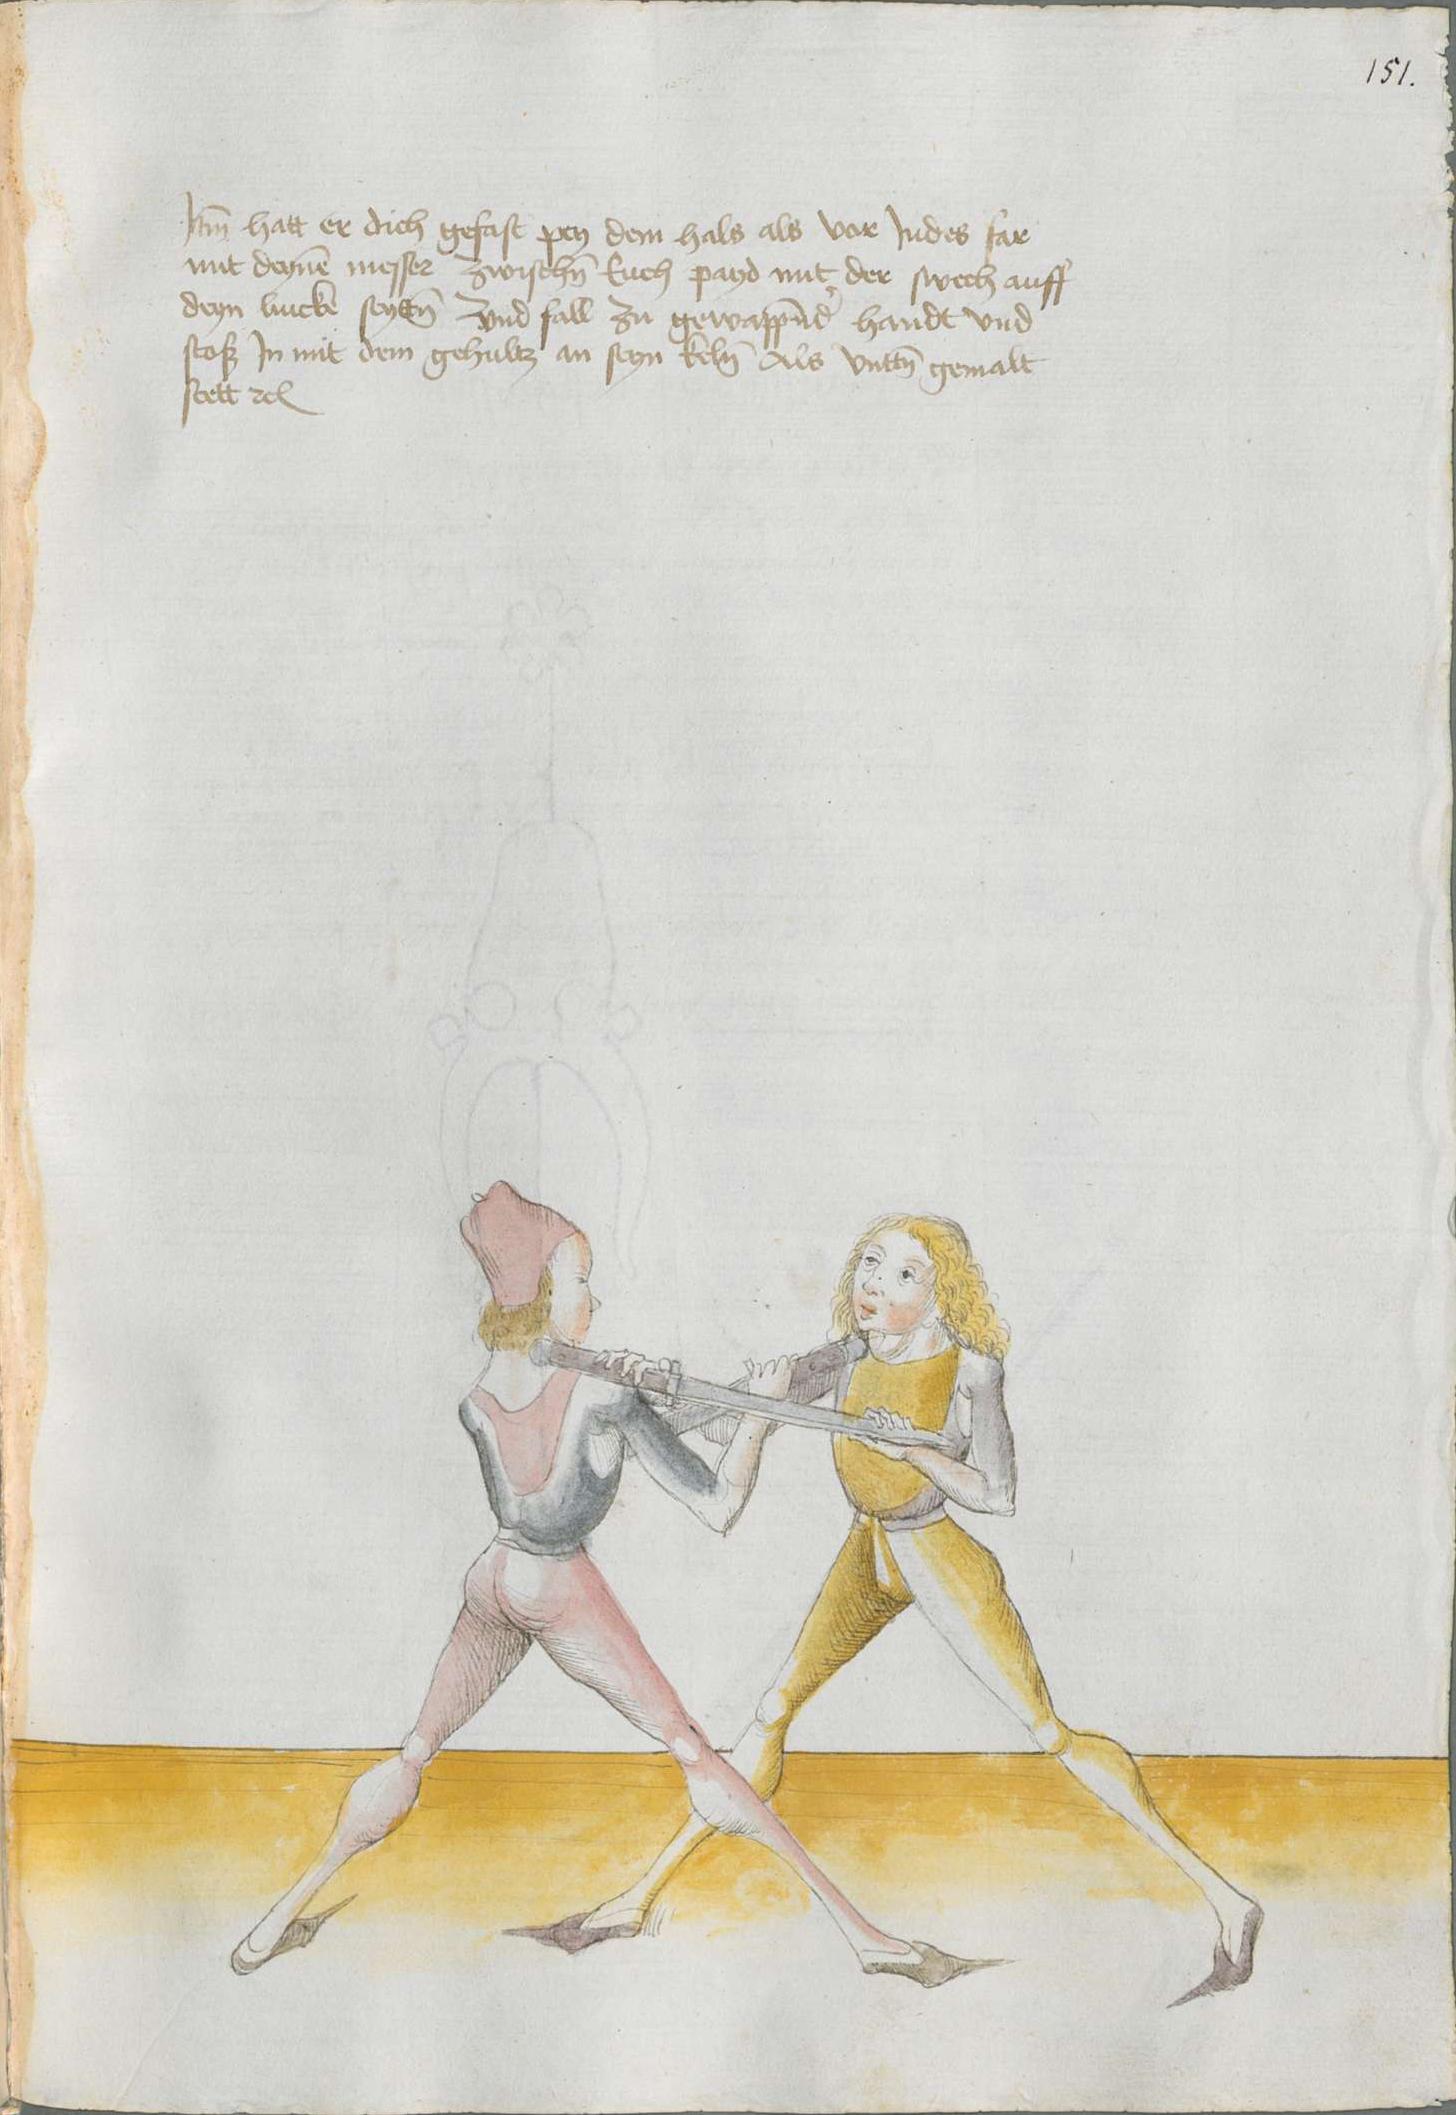 151.
Itm̄ hatt er dich gefast pey dem hals als vor Indes far
mit deynē messer zwischn̄ Euch payd mit der swech auff
deyn lincke seyttn̄ Vnd fall zu gewappn̄d' handt vnd
stoß In mit dem gehultz an seyn keln̄ Als vnttn̄ gemalt
stett ꝛcͣ